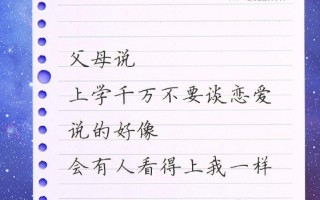 父母说
上学千万不要谈恋爱
说的好像
会有人看得上我一样